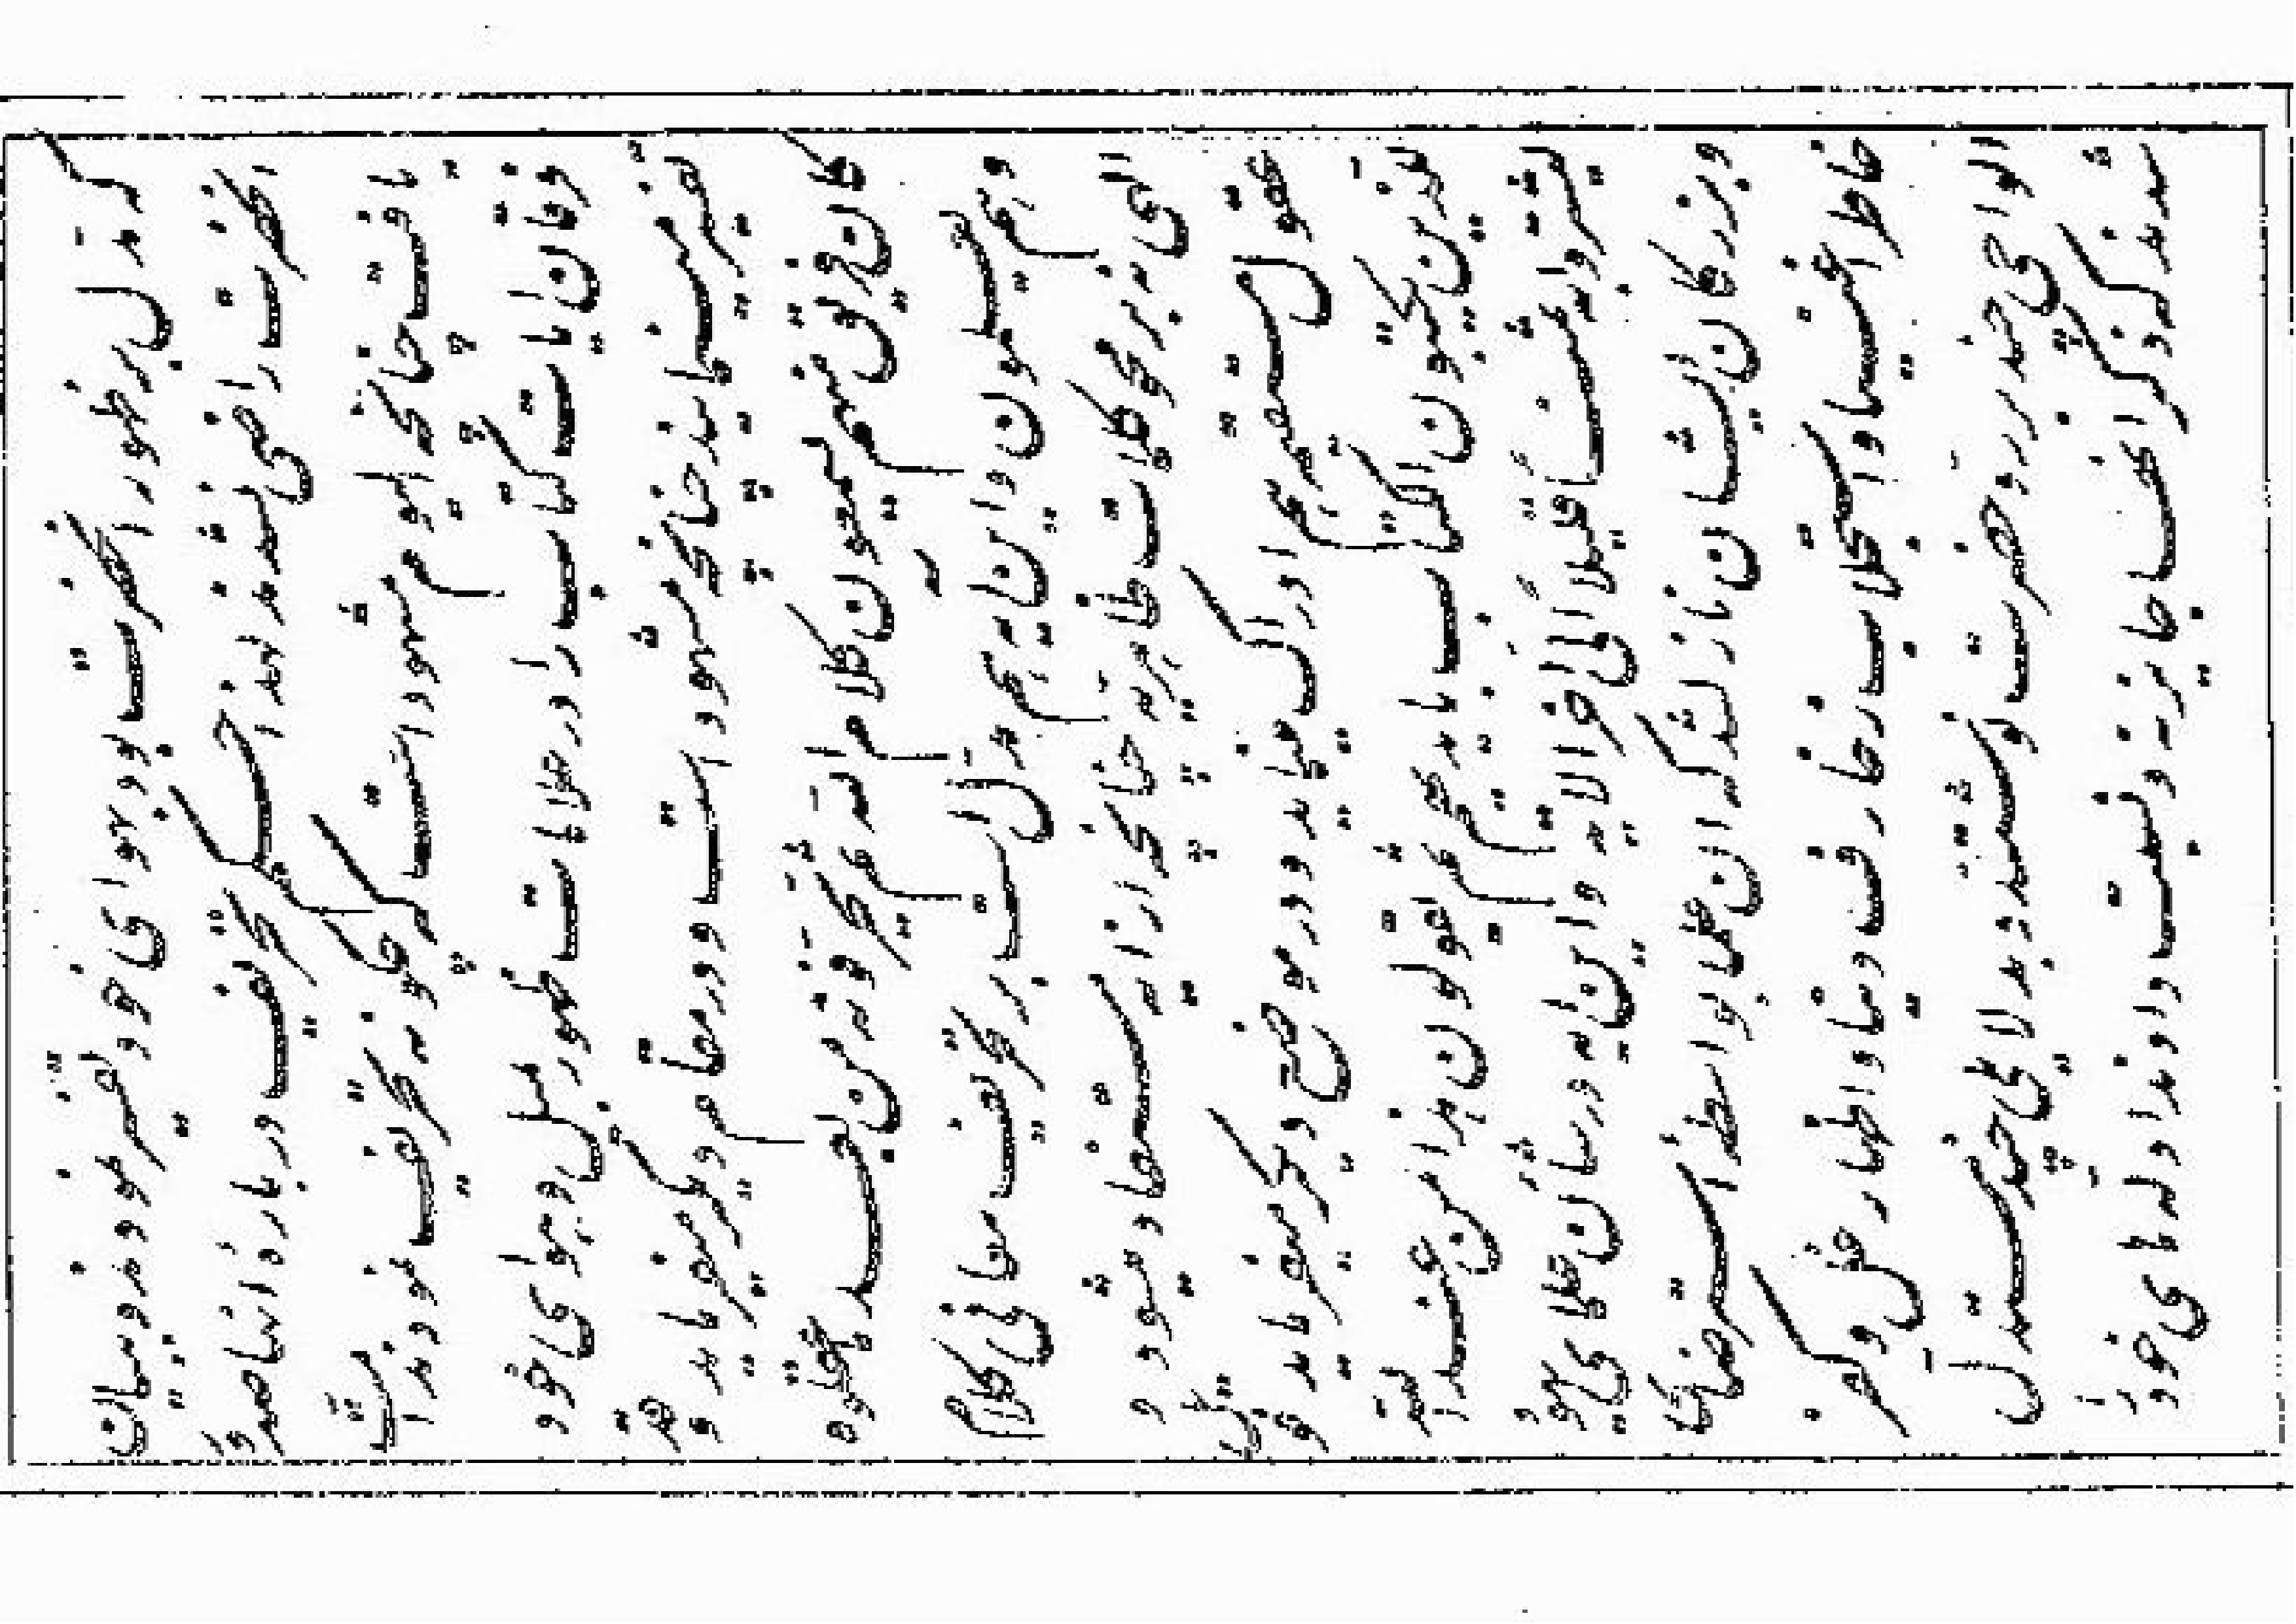 که مدل بر ظهور آنحضرت بود بهوای خود تفسیر نمودند و ببیان
آنحضرت راضی نشدند لهذا حکم تحریف درباره آنها صدور
یافت چنانچه الیوم مشهود است که چگونه تحریف نمودند امت
فرقان آیات کتاب را در علامات ظهور بمیل و هوای خود
تفسیر مینمایند چنانچه مشهود است و در مقام دیگر میفرماید و قد
کان فریق منهم یسمعون کلام الله ثم یحرفونه من بعد ما عقلوه
و هم یعلمون و این آیه هم مدل است بر تحریف معانی کلام
الهی نه بر محو کلمات ظاهریه چنانچه از آیه مستفاد میشود و
عقول مستقیمه هم ادراک مینماید و در موضع دیگر میفرماید فویل
للذین یکتبون الکتاب بایدیهم ثم یقولون هذا من عند الله
لیشتروا به ثمناً قلیلاً الی آخر الآیه و این آیه در شان علمای یهود
و بزرگان ایشان نازل شد که آن علما بواسطه استرضای
خاطر اغنیا و استجلاب زخارف دنیا و اظهار غل و کفر
الواحی چند بر رد حضرت نوشتند و بدلایلی چند مستدل
شدند که ذکر آنها جایز نه و نسبت دادند ادله‌های خود را